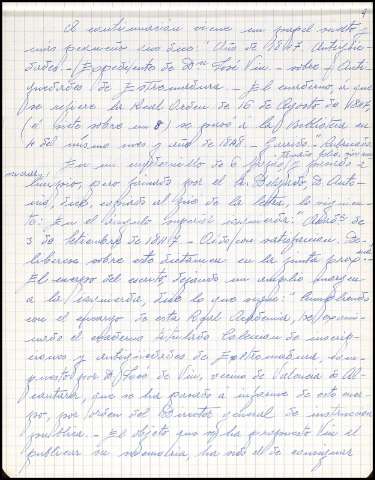 A continuación viene un papel suelto
más pequeño que dice: "Año de 1847 Antigüe-
dades - Expediente de Dn José Viu - sobre Anti-
güedades de Extremadura - El cuaderno, a que
se refiere la Real Orden de 16 de Agosto de 1847,
(el siete sobre un 8) se pasó a la Biblioteca en
4 del mismo mes y año de 1848 -
En un cuadernillo de 6
limpio, pero firmado por el Sr Delgado, D. Anto-
nio, dice, copiado al pie de la letra, lo siguien-
te: En el ángulo superior izquierda: "Acadª de
3 de Setiembre de 1847 - Oido con satisfacción, De-
liberese sobre este dictamen en la junta proxima
El cuerpo del escrito, dejando un amplio margen
a la izquierda, dice lo que sigue: "Cumpliendo
con el encargo de esta Real Academia, he exami-
minado el cuaderno titulado Coleccion de inscrip-
ciones y antigüedades de Extremadura, com-
puesta por D. José de Viu, vecino de Valencia de Al-
cantara, que se ha pasado a informe de este cuer-
po, por orden del Director general de instruccion
publica. - El objeto que se ha propuesto Viu al
publicar su memoria, ha sido el de consignar